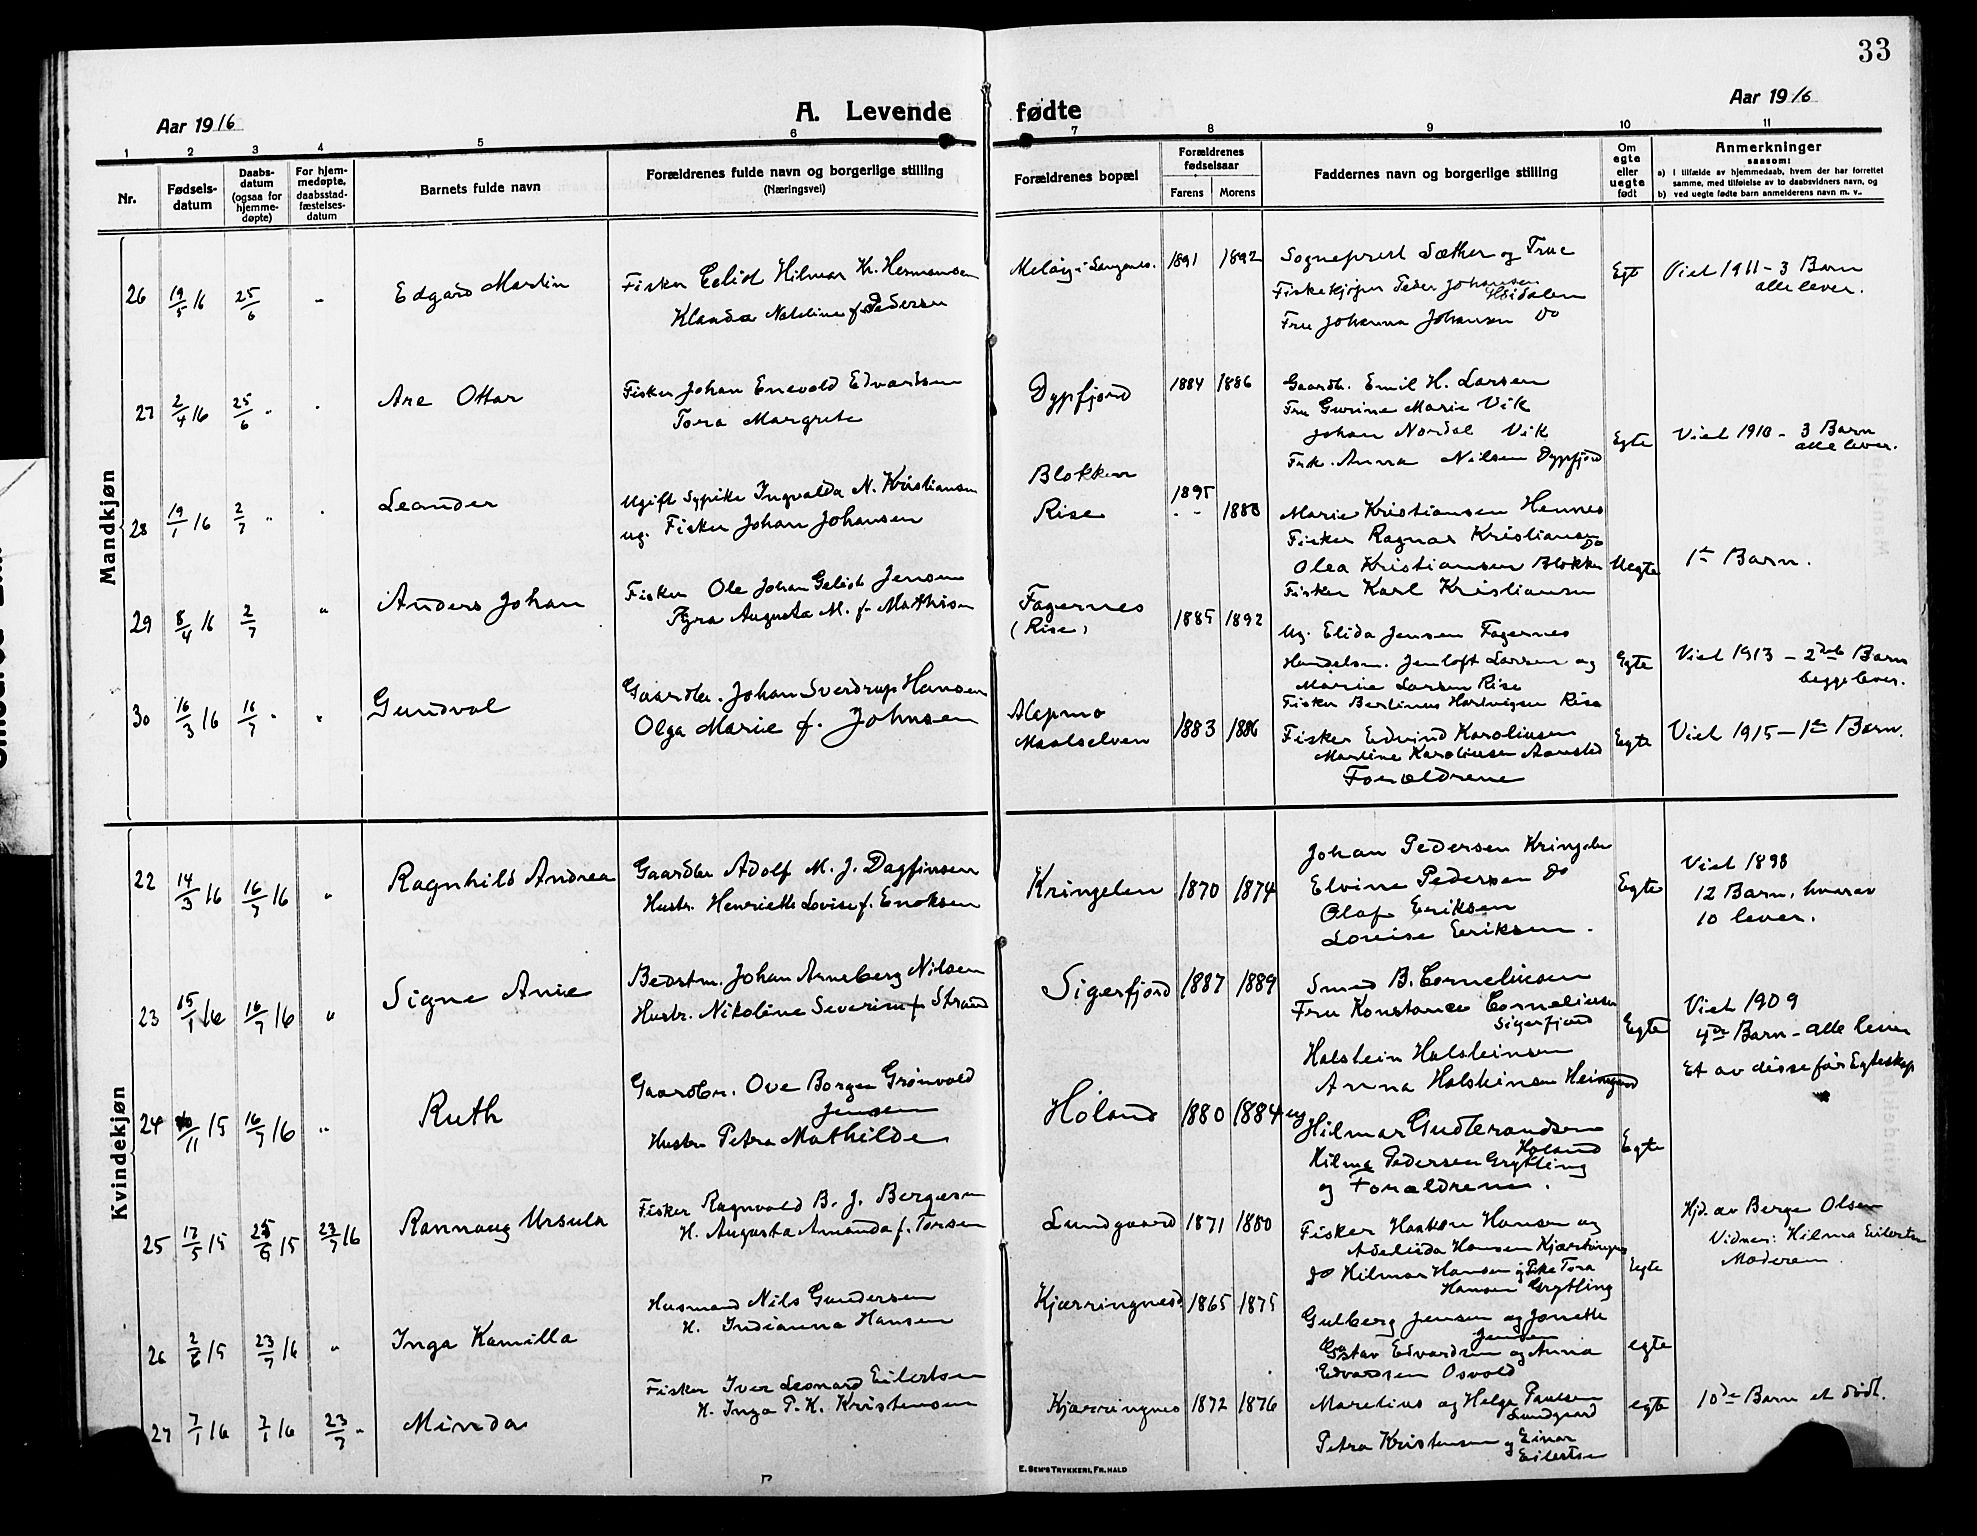 33
Aar 1916
A. Levende fødte
Aar 1916
1 2 3 4 5 6 7 8 9 10 11
Nr.
Fødsels-
datum
Daabs-
datum
(ogsaa for
hjemme-
døpte)
For hjem-
medøpte,
daabsstad-
fæstelses-
datum
Barnets fulde navn
Forældrenes fulde navn og borgerlige stilling
(Næringsvei)
Forældrenes bopæl
Forældrenes
fødselsaar
Farens Morens
Faddernes navn og borgerlige stilling
Om
egte
eller
uegte
født
Anmerkninger
saasom:
a) i tilfælde av hjemmedaab, hvem der har forrettet
samme, med tilføielse av to daabsvidners navn, og
b) ved uegte fødte barn anmelderens navn m. v..
Mandkjøn
26 19/5 16 25/6 - Edgard Martin
Fisker Hilmar Kr. Hermansen
Klaudia Nataline f. Pedersen
1891 1892
Sogneprest Sæther og Frue
Fiskekjøper Peder Johansen
Høidalen
Fru Johanna Johansen Do
Egt
Viet 1911 - 3 Barn
alle lever.
27 2/4 16 25/6 " Are Ottar
Fisker Johan Enevold Edvardsen
Tora Margrete
Dypfjord 1884 1886
Gaardb. Emil H. Larsen
Fru Gurine Marie Vik
Johan Nordal Vik
Frk. Anna Nilsen Dypfjord
Egte
Viet 1910 - 3 Barn
alle lever.
28 19/1 16 2/7 " Leander
Ugift Sypike Ingvalda N. Kristiansen
ug. Fisker Johan Johansen
Blokken
Rise
1895
1888
Marie Kristiansen Hennes
Fisker Ragnar Kristiansen
Do
Olea Kristiansen Blokken
Fisker Karl Kristiansen
Uegte
1te Barn.
29 8/4 16 2/7 " Anders Johan
Fisker Ole Johan Jensen
Augusta M. f. Mathisen
Fagernes
(Rise)
1885 1892
Ug. Elida Jensen Fagernes
Handelsm. Jentoft Larsen og
Marie Larsen Rise
Fisker Bertinus Hartvigsen Rise
Egte
Viet 1913 - 2det Barn
begge lever.
30 16/3 16 16/7 " " Gundval
Gaardbr. Johan Sverdrup Hansen
Olga Marie f. Johnsen
Alapmo
Maalselven
1883 1886
Fisker Edvind Karoliusen
Martine Karoliusen Aarsted
Forældrene
Egte
Viet 1915 - 1te Barn.
Kvindekjøn
22 14/3 16 16/7 16 " Ragnhild Andrea
Gaardbr Adolf M. J. Dagfinsen
Hustr. Henriette Lovise f. Enoksen
Kringelen 1870 1874
Johan Pedersen Kringelen
Elvine Pedersen Do
Olaf Eriksen
Lovise Eriksen.
Egte
Viet 1898
12 Barn, hvorav
10 lever.
23 15/1 16 16/7 16 " Signe Anie
Bedstm. Johan Arneberg Nilsen
Hustr. Nikoline Severine f. Strand
Sigerfjord 1887 1889
Smed B. Corneliusen
Fru Konstance Corneliusen
Sigerfjord
Holstein Holsteinsen
Anna Holsteinsen
Egte
Viet 1909
4de Barn - alle lever
Et av disse før Egteskap
24 16/11 15 16/7 16 " Ruth
Gaardbr. Ove Borgen Grønvold
Jensen
Hustr Petra Mathilde
Holand 1880 1884
ug Hilmar Gudbrandsen
Holand
Hilma Pedersen Grytting
og Forældrene.
Egte
25 17/5 15 25/6 15 23/7 16 Rannaug Ursula
Fisker Ragnvald B. J. Bergesen
H. Augusta Amanda f. Torsen
Lundgaard 1871 1880
Fisker Haakon Hansen og
Adelida Hansen Kjærringnes
do Hilmar Hansen og Pike Tora
Hansen Grytting
Egte
Hjd. av Berge Olsen
Vidner: Hilma Eilertsen
Moderen.
26 2/8 15 23/7 16 " Inga Kamilla
Husmand Nils Gundersen
H. Indianna Hansen
Kjærringnes 1865 1875
Gulberg Jensen og Jonette
Jensen
Gustav Edvardsen og Anna
Edvardsen Osvold
egte
27 7/1 16 7/1 16 23/7 " Minda
Fisker Iver Leonard Eilertsen
H. Inga P. K. Kristensen
Kjærringnes 1872 1876
Maretius og Helga Paulsen
Lundgaard
Petra Kristensen og Einar
Eilertsen
egte
10de Barn et dødt.
E. SEM'S TRYKKERI, FR. HALD